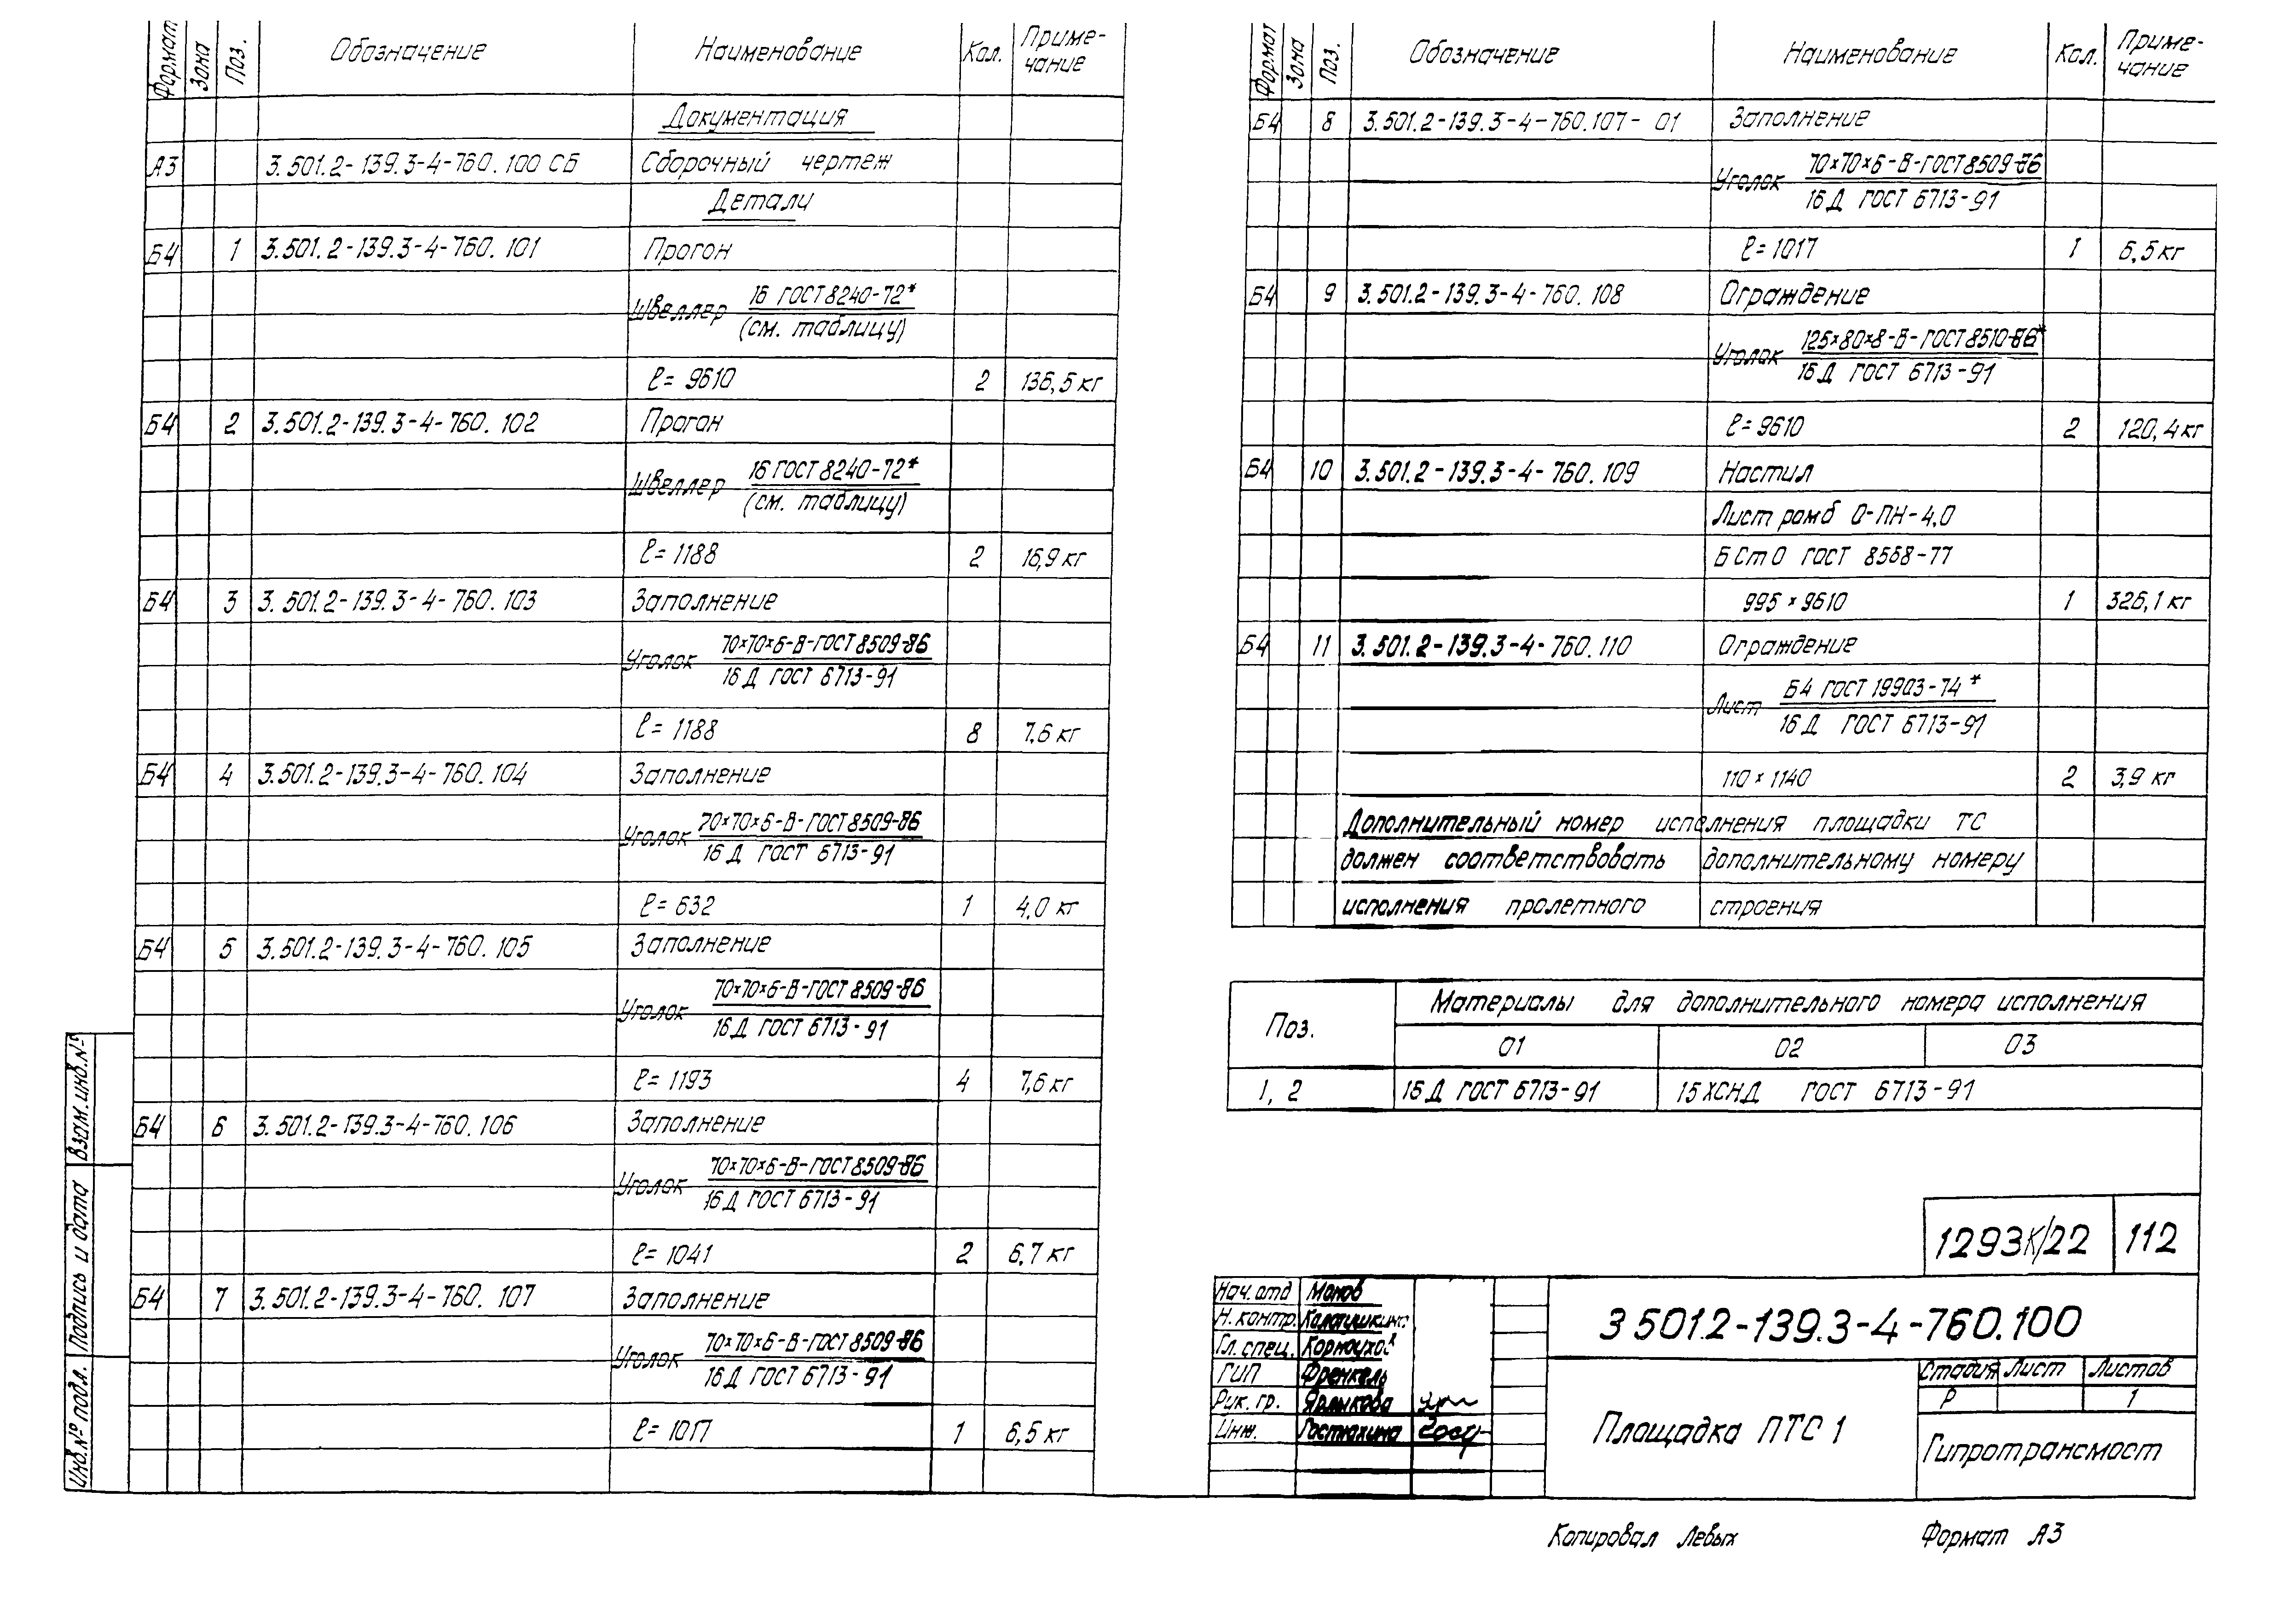 Формат Зона Поз. Обозначение Наименование Кол. Приме-
чание
Документация
А3 3.501.2-139.3-4-760.100 СБ Сборочный чертеж
Детали
Б4 1 3.501.2-139.3-4-760.101 Прогон
Швеллер 16 ГОСТ 8240-72*
(см. таблицу)
ℓ= 9610 2 136,5 кг
Б4 2 3.501.2-139.3-4-760.102 Прогон
Швеллер 16 ГОСТ 8240-72*
(см. таблицу)
ℓ= 1188 2 16,9 кг
Б4 3 3.501.2-139.3-4-760.103 Заполнение
Уголок 70×70×6-В-ГОСТ 8509-86
16Д ГОСТ 6713-91
ℓ= 1188 8 7,6 кг
Б4 4 3.501.2-139.3-4-760.104 Заполнение
Уголок 70×70×6-В-ГОСТ 8509-86
16Д ГОСТ 6713-91
ℓ= 632 1 4,0 кг
Б4 5 3.501.2-139.3-4-760.105 Заполнение
Уголок 70×70×6-В-ГОСТ 8509-86
16Д ГОСТ 6713-91
ℓ= 1193 4 7,6 кг
Б4 6 3.501.2-139.3-4-760.106 Заполнение
Уголок 70×70×6-В-ГОСТ 8509-86
16Д ГОСТ 6713-91
ℓ= 1041 2 6,7 кг
Б4 7 3.501.2-139.3-4-760.107 Заполнение
Уголок 70×70×6-В-ГОСТ 8509-86
16Д ГОСТ 6713-91
ℓ= 1017 1 6,5 кг
Взам.инв.№
Подпись и дата
Инв.№ подл.
Формат Зона Поз. Обозначение Наименование Кол. Приме-
чание
Б4 8 3.501.2-139.3-4-760.107-01 Заполнение
Уголок 70×70×6-В-ГОСТ 8509-86
16Д ГОСТ 6713-91
ℓ= 1017 1 6,5 кг
Б4 9 3.501.2-139.3-4-760.108 Ограждение
Уголок 125×80×8-В-ГОСТ 8510-86*
16Д ГОСТ 6713-91
ℓ= 9610 2 120,4 кг
Б4 10 3.501.2-139.3-4-760.109 Настил
Лист ромб О-ПН-4,0
БСт0 ГОСТ 8568-77
995 × 9610 1 326,1 кг
Б4 11 3.501.2-139.3-4-760.110 Ограждение
Лист Б4 ГОСТ 19903-74*
16Д ГОСТ 6713-91
110 × 1140 2 3,9 кг
Дополнительный номер исполнения площадки ТС
должен соответствовать дополнительному номеру
исполнения пролетного строения
Поз. Материалы для дополнительного номера исполнения
01 02 03
1, 2 16Д ГОСТ 6713-91 15ХСНД ГОСТ 6713-91
1293К/22 112
Нач. отд Монов
Н. контр.
Гл. спец. Корноухов
ГИП Френкель
Рук. гр.
Инж. Гостюхина
3 501.2-139.3-4-760.100
Площадка ПТС 1
Стадия Лист Листов
Р 1
Гипротрансмост
Копировал Левых Формат А3